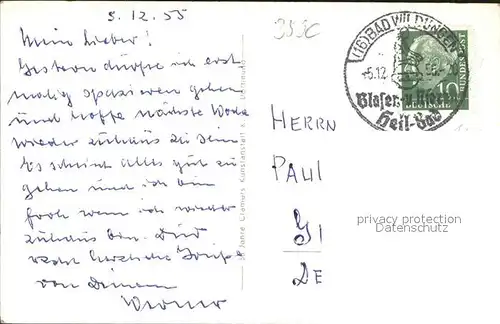 5.12.55
Mein Lieber!
Gestern durfte ich erst
malig spazieren gehen
und hoffe nächste Woche
wieder zuhaus zu sein
Es scheint alles gut zu
gehen und ich bin
froh wenn ich wieder
zuhaus bin. Dir
recht herzliche Grüße
von Deinem
Werner
Jahre Cramers Kunstanstalt Dortmund
(16) BAD WILDUNGEN
5.12.55
Heil-Bad
DEUTSCHE BUNDESPOST
10
HERRN
PAUL
privacy protection
Datenschutz